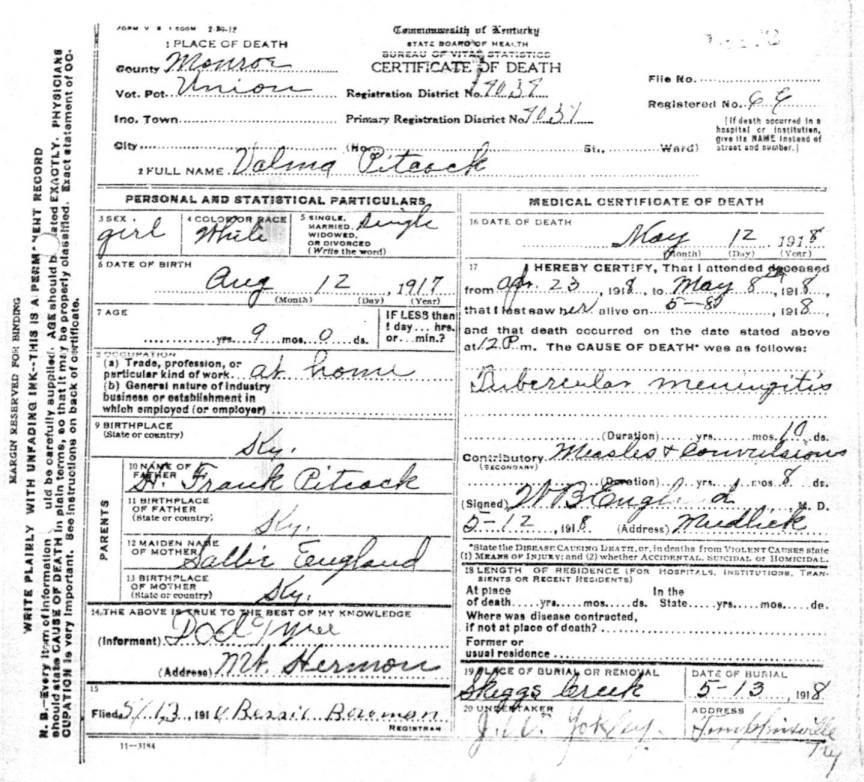 FORM V. S. 1 500M 2-20-12
Commonwealth of Kentucky
STATE BOARD OF HEALTH
BUREAU OF VITAL STATISTICS
CERTIFICATE OF DEATH
1 PLACE OF DEATH
County Monroe
Vot. Pct. Union
Inc. Town
City
Registration District No.
Primary Registration District No.
(No. St., Ward)
File No.
Registered No.
[If death occurred in a
hospital or institution,
give its NAME instead of
street and number.]
2 FULL NAME Valma Pitcock
PERSONAL AND STATISTICAL PARTICULARS
3 SEX girl
4 COLOR OR RACE White
5 SINGLE,
MARRIED,
WIDOWED,
OR DIVORCED
(Write the word)
Single
6 DATE OF BIRTH
Aug 12, 1917
(Month) (Day) (Year)
7 AGE
yrs. 9 mos. 0 ds.
IF LESS than
1 day... hrs.
or... min.?
8 OCCUPATION
(a) Trade, profession, or
particular kind of work at home
(b) General nature of industry
business or establishment in
which employed (or employer)
9 BIRTHPLACE
(State or country)
Ky.
PARENTS
10 NAME OF
FATHER
Frank Pitcock
11 BIRTHPLACE
OF FATHER
(State or country)
Ky.
12 MAIDEN NAME
OF MOTHER
Sallie England
13 BIRTHPLACE
OF MOTHER
(State or country)
Ky.
14 THE ABOVE IS TRUE TO THE BEST OF MY KNOWLEDGE
(Informant)
(Address) Mt. Hermon
15
Filed 5/13, 191 Bessie Bowman
REGISTRAR
11-3184
MEDICAL CERTIFICATE OF DEATH
16 DATE OF DEATH
May 12 1918
(Month) (Day) (Year)
17 I HEREBY CERTIFY, That I attended deceased
from Apr. 23, 1918, to May 8, 1918,
that I last saw her alive on 5-8, 1918,
and that death occurred on the date stated above
at 12 P.m. The CAUSE OF DEATH* was as follows:
Tubercular meningitis
(Duration) yrs. mos. 10 ds.
Contributory Measles & Convulsions
(SECONDARY)
(Duration) yrs. mos. 8 ds.
(Signed) W B England M. D.
5-12, 1918 (Address) Mudlick
*State the DISEASE CAUSING DEATH, or, in deaths from VIOLENT CAUSES state
(1) MEANS OF INJURY; and (2) whether ACCIDENTAL, SUICIDAL or HOMICIDAL.
18 LENGTH OF RESIDENCE (FOR HOSPITALS, INSTITUTIONS, TRAN-
SIENTS OR RECENT RESIDENTS)
At place
of death yrs. mos. ds.
In the
State yrs. mos. ds.
Where was disease contracted,
if not at place of death?
Former or
usual residence
19 PLACE OF BURIAL OR REMOVAL
Skeggs Creek
DATE OF BURIAL
5-13, 1918
20 UNDERTAKER
J. W. Yokley
ADDRESS
Tompkinsville
Ky
MARGIN RESERVED FOR BINDING
WRITE PLAINLY WITH UNFADING INK--THIS IS A PERM ENT RECORD
N. B.--Every item of information uld be carefully supplied. AGE should b ated EXACTLY. PHYSICIANS
should state CAUSE OF DEATH in plain terms, so that it may be properly classified. Exact statement of OC-
CUPATION is very important. See instructions on back of certificate.